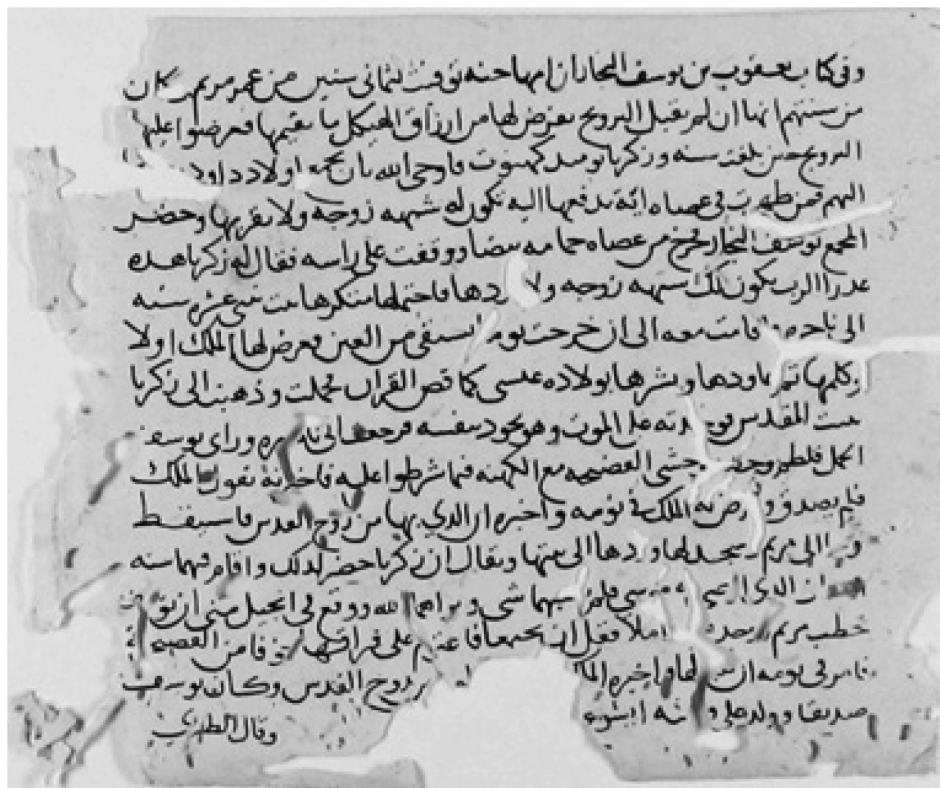 وفي كتاب يعقوب بن يوسف النجار ان امها حنه توفيت لثماني سنين من عمر مريم وكان
من سنتهم انها ان لم تقبل التزويج يفرض لها من ارزاق الهيكل ما يقيمها فعرضوا عليها
التزويج حين بلغت سنه وزكريا يوميد كهنوت فاوحى الله بان يجمع اولاد داود
اليهم فمن ظهرت في عصاه اية تدفعها اليه تكون له شبه زوجه ولا يقربها وحضر
المجمع يوسف النجار فخرج من عصاه حمامه بيضا ووقفت على راسه فقال له زكريا هذه
عذرا الرب تكون لك شبه زوجه ولا تردها فاحتملها متكرها بنت ثنتي عشرة سنه
الى ناصره فاقامت معه الى ان خرجت يوما تستقي من العين فعرض لها الملك اولا
وكلمها ثم عاودها وبشرها بولاده عيسى كما قص القران فحملت وذهبت الى زكريا
ببيت المقدس فوجدته على الموت وهو يجود بنفسه فرجعت الى ناصره وراى يوسف
الحمل فلطم وجهه وخشي الفضيحه مع الكهنه فيما شرطوا عليه فاخبرته بقول الملك
فلم يصدق وعرض له الملك في نومه واخبره ان الذي بها من روح القدس فاستيقظ
الى مريم فسجد لها وردها الى بيتها ويقال ان زكريا حضر لذلك واقام فيهما سنه
موسى فلم يصبهما شي وبراهما الله ووقع في انجيل متى ان يوسف
خطب مريم ووجدها حاملا قبل ان يجتمعا فاعتزم على فراقها خوفا من الفضيحة
فامر في نومه ان يقبلها واخبره الملك روح القدس وكان يوسف
صديقا وولد على ايشوع
وقال الطبري